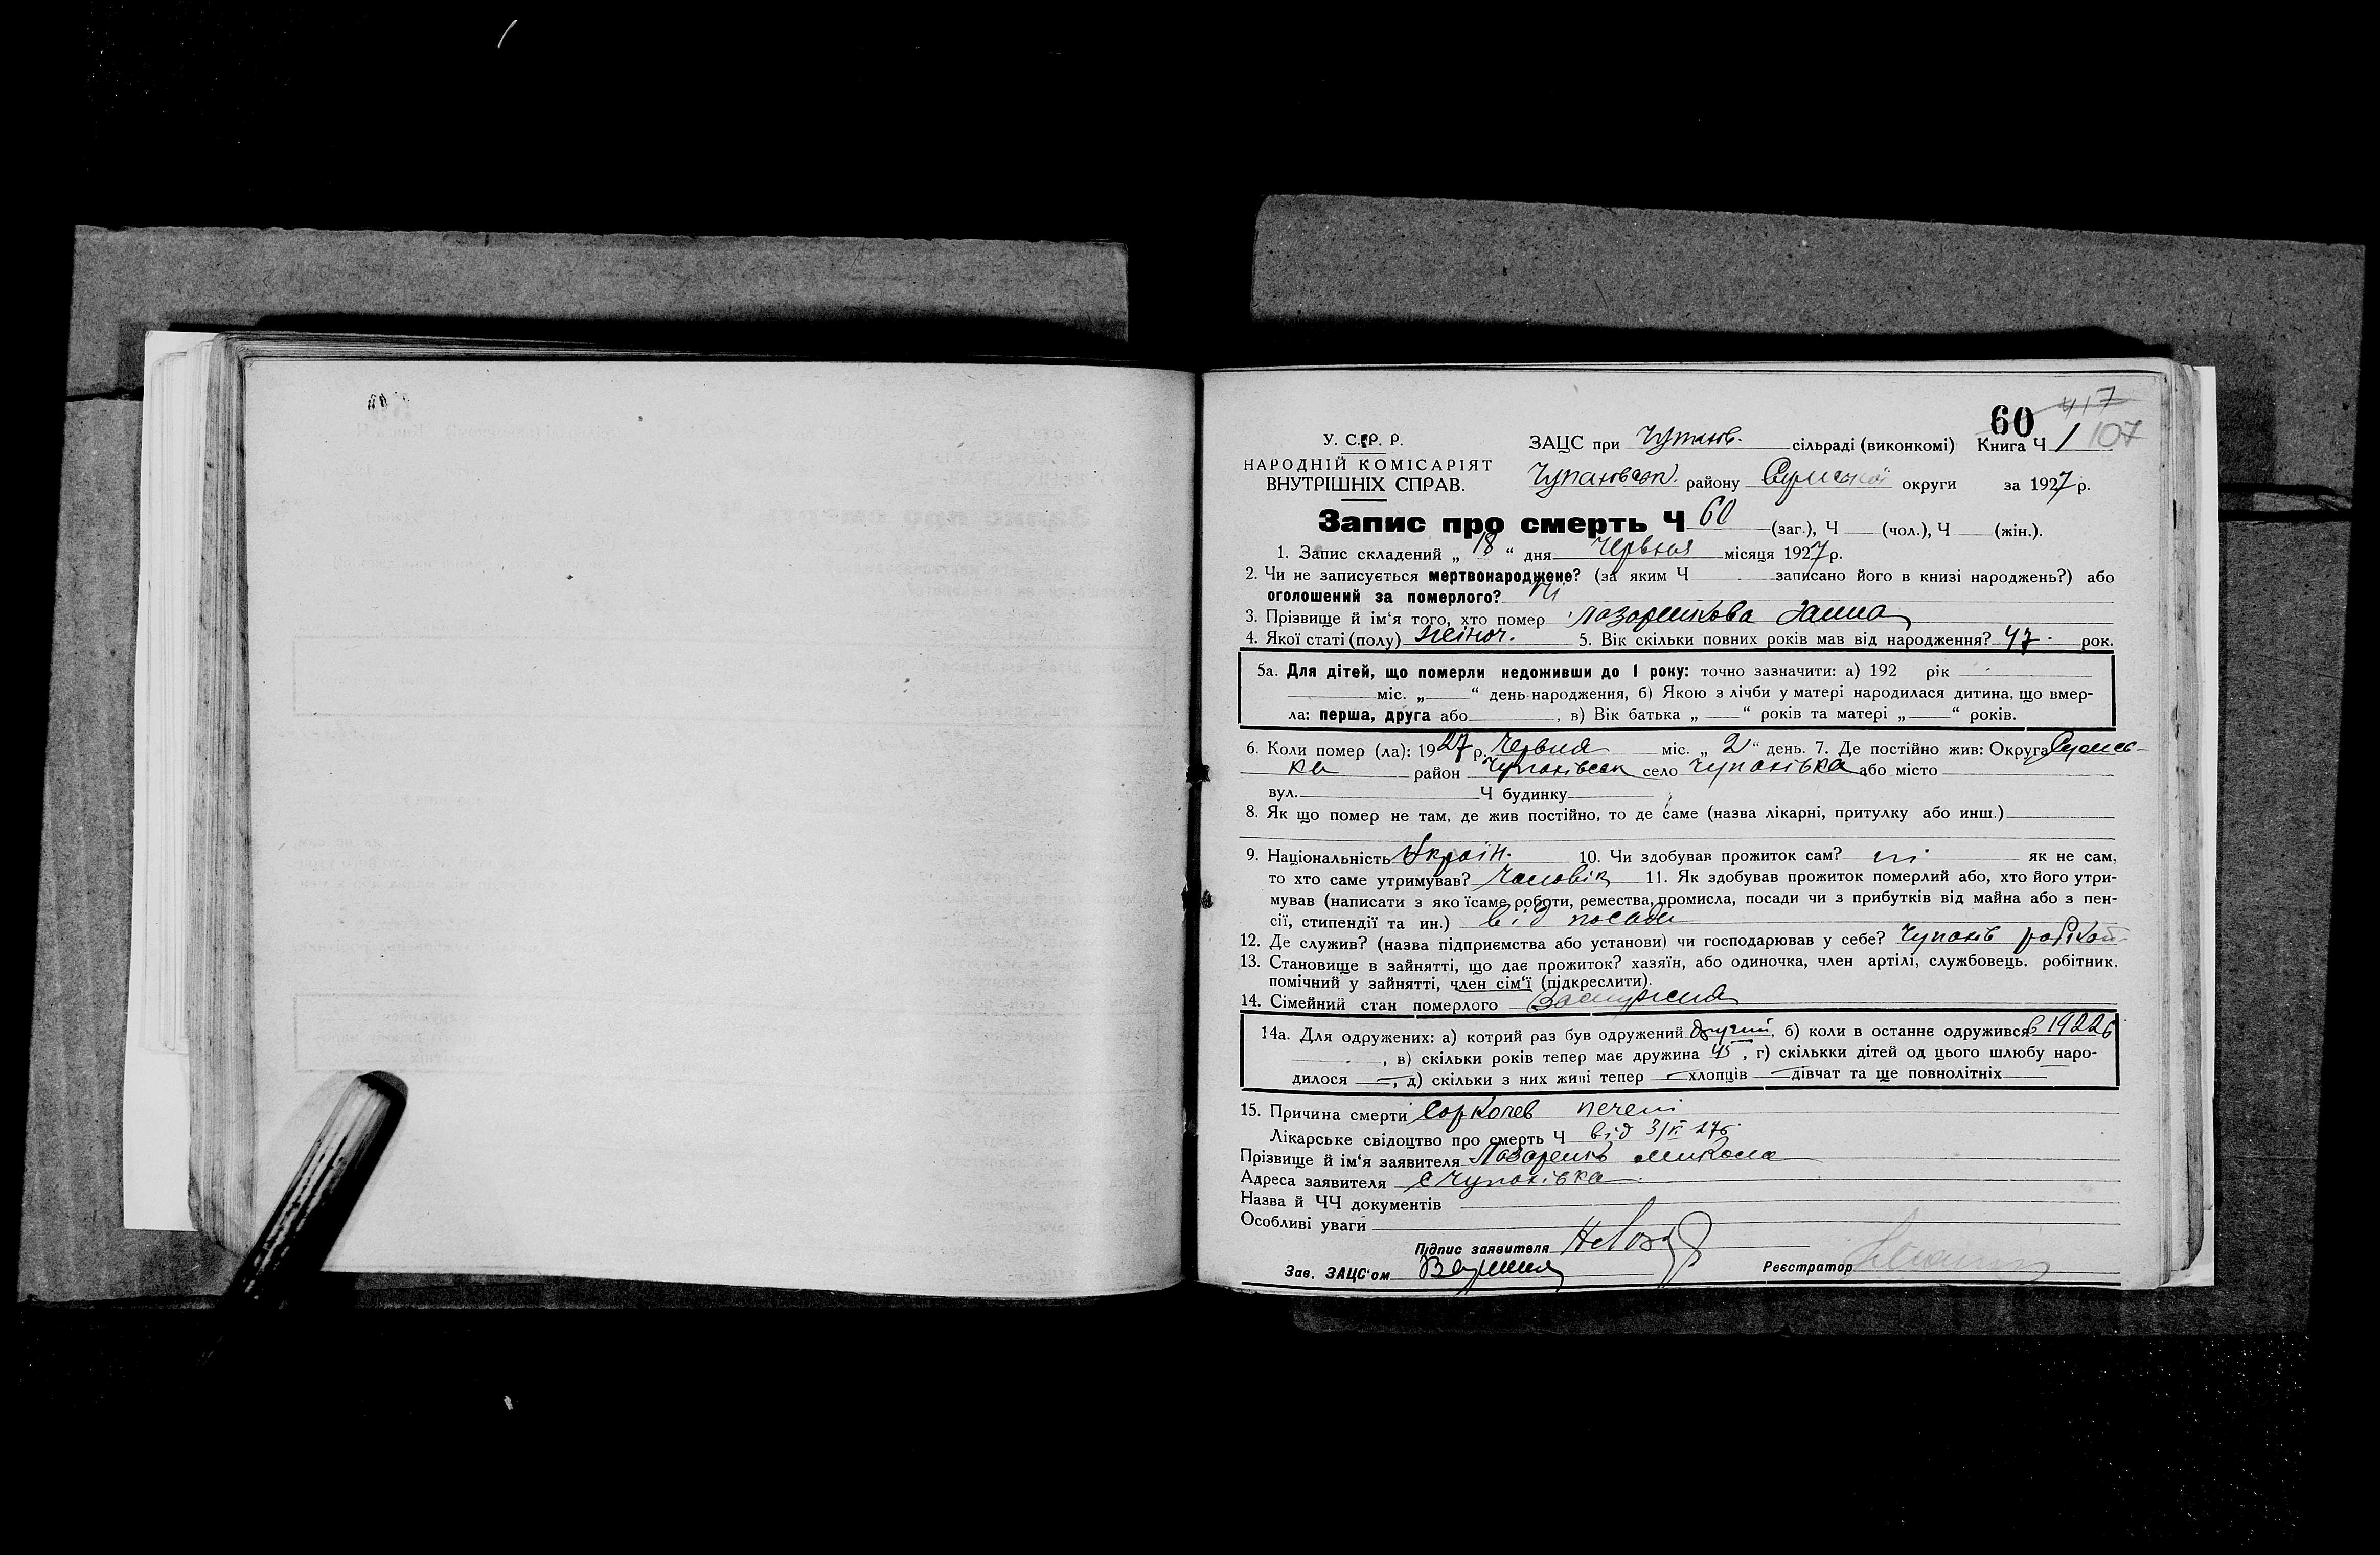 60 417
У. С. Р. Р. ЗАЦС при Чупахів. сільраді (виконкомі) Книга Ч 1 107
НАРОДНІЙ КОМІСАРІЯТ
ВНУТРІШНІХ СПРАВ. Чупахівськ. району Сумської округи за 1927 р.
Запис про смерть Ч 60 (заг.), Ч (чол.), Ч (жін.).
1. Запис складений „ 18 “ дня Червня місяця 1927 р.
2. Чи не записується мертвонароджене? (за яким Ч записано його в книзі народжень?) або
оголошений за померлого? Ні
3. Прізвище й ім‘я того, хто помер Ганна
4. Якої статі (полу) жіноч. 5. Вік скільки повних років мав від народження? 47 рок.
5а. Для дітей, що померли недоживши до 1 року: точно зазначити: а) 192 рік
міс. „ “ день народження, б) Якою з лічби у матері народилася дитина, що вмер-
ла: перша, друга або , в) Вік батька „ “ років та матері „ “ років.
6. Коли помер (ла): 1927 р. Червня міс. „ 2 “ день. 7. Де постійно жив: Округа Сумсь-
ка район Чупахівськ село Чупахівка або місто
вул. Ч будинку
8. Як що помер не там, де жив постійно, то де саме (назва лікарні, притулку або инш.)
9. Національність Україн. 10. Чи здобував прожиток сам? ні як не сам,
то хто саме утримував? Чоловік 11. Як здобував прожиток померлий або, хто його утри-
мував (написати з яко їсаме роботи, ремества, промисла, посади чи з прибутків від майна або з пен-
сії, стипендії та ин.) від посади
12. Де служив? (назва підприємства або установи) чи господарював у себе? Чупахів
13. Становище в зайнятті, що дає прожиток? хазяїн, або одиночка, член артілі, службовець, робітник,
помічний у зайнятті, член сім‘ї (підкреслити).
14. Сімейний стан померлого Замужня
14а. Для одружених: а) котрий раз був одружений другий, б) коли в останнє одружився в 1922 р
, в) скільки років тепер має дружина 45, г) скількки дітей од цього шлюбу наро-
дилося —, д) скільки з них живі тепер — хлопців — дівчат та ще повнолітніх
15. Причина смерти печені
Лікарське свідоцтво про смерть Ч від 3/VI 27 р.
Прізвище й ім‘я заявителя Микола
Адреса заявителя с Чупахівка
Назва й ЧЧ документів
Особливі уваги
Підпис заявителя
Зав. ЗАЦС‘ом Реєстратор